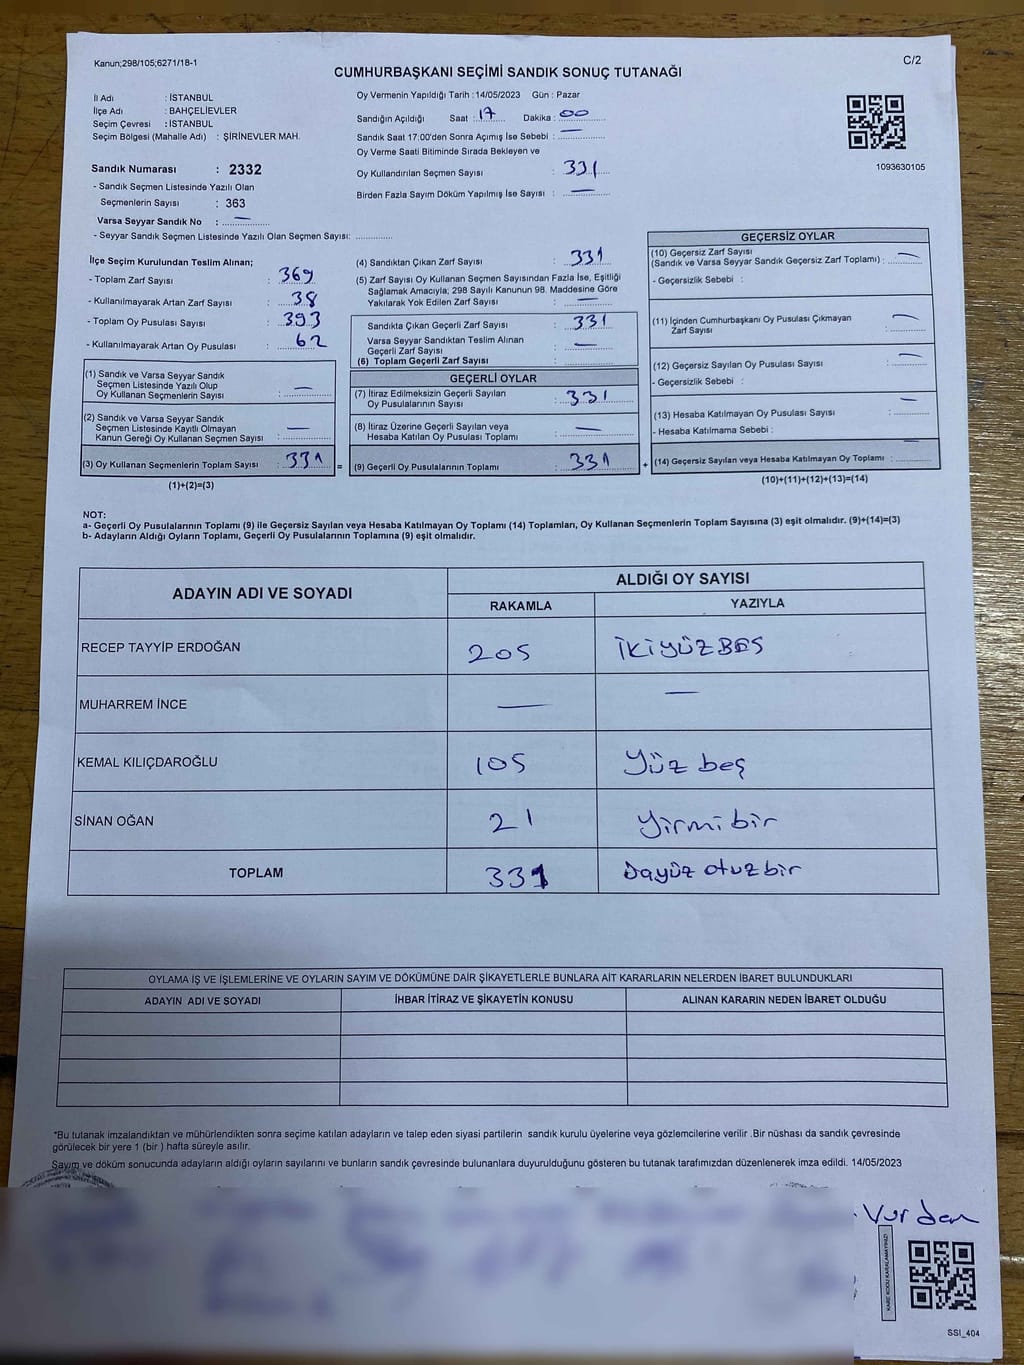 Kanun;298/105;6271/18-1
C/2
CUMHURBAŞKANI SEÇİMİ SANDIK SONUÇ TUTANAĞI
İl Adı : İSTANBUL
İlçe Adı : BAHÇELİEVLER
Seçim Çevresi : İSTANBUL
Seçim Bölgesi (Mahalle Adı) : ŞİRİNEVLER MAH.
Sandık Numarası : 2332
- Sandık Seçmen Listesinde Yazılı Olan
Seçmenlerin Sayısı : 363
Varsa Seyyar Sandık No : —
- Seyyar Sandık Seçmen Listesinde Yazılı Olan Seçmen Sayısı: ............
Oy Vermenin Yapıldığı Tarih :14/05/2023 Gün : Pazar
Sandığın Açıldığı Saat : 17 Dakika : 00
Sandık Saat 17:00'den Sonra Açımış İse Sebebi : —
Oy Verme Saati Bitiminde Sırada Bekleyen ve
Oy Kullandırılan Seçmen Sayısı : 331
Birden Fazla Sayım Döküm Yapılmış İse Sayısı : —
1093630105
İlçe Seçim Kurulundan Teslim Alınan;
- Toplam Zarf Sayısı : 369
- Kullanılmayarak Artan Zarf Sayısı : 38
- Toplam Oy Pusulası Sayısı : 393
- Kullanılmayarak Artan Oy Pusulası : 62
(1) Sandık ve Varsa Seyyar Sandık
Seçmen Listesinde Yazılı Olup
Oy Kullanan Seçmenlerin Sayısı : —
(2) Sandık ve Varsa Seyyar Sandık
Seçmen Listesinde Kayıtlı Olmayan
Kanun Gereği Oy Kullanan Seçmen Sayısı : —
(3) Oy Kullanan Seçmenlerin Toplam Sayısı : 331
(1)+(2)=(3)
(4) Sandıktan Çıkan Zarf Sayısı : 331
(5) Zarf Sayısı Oy Kullanan Seçmen Sayısından Fazla İse, Eşitliği
Sağlamak Amacıyla; 298 Sayılı Kanunun 98. Maddesine Göre
Yakılarak Yok Edilen Zarf Sayısı : —
Sandıkta Çıkan Geçerli Zarf Sayısı : 331
Varsa Seyyar Sandıktan Teslim Alınan
Geçerli Zarf Sayısı : —
(6) Toplam Geçerli Zarf Sayısı :
GEÇERLİ OYLAR
(7) İtiraz Edilmeksizin Geçerli Sayılan
Oy Pusulalarının Sayısı : 331
(8) İtiraz Üzerine Geçerli Sayılan veya
Hesaba Katılan Oy Pusulası Toplamı : —
= (9) Geçerli Oy Pusulalarının Toplamı : 331
GEÇERSİZ OYLAR
(10) Geçersiz Zarf Sayısı
(Sandık ve Varsa Seyyar Sandık Geçersiz Zarf Toplamı) : —
- Geçersizlik Sebebi :
(11) İçinden Cumhurbaşkanı Oy Pusulası Çıkmayan
Zarf Sayısı : —
(12) Geçersiz Sayılan Oy Pusulası Sayısı : —
- Geçersizlik Sebebi :
(13) Hesaba Katılmayan Oy Pusulası Sayısı : —
- Hesaba Katılmama Sebebi :
+ (14) Geçersiz Sayılan veya Hesaba Katılmayan Oy Toplamı : —
(10)+(11)+(12)+(13)=(14)
NOT:
a- Geçerli Oy Pusulalarının Toplamı (9) ile Geçersiz Sayılan veya Hesaba Katılmayan Oy Toplamı (14) Toplamları, Oy Kullanan Seçmenlerin Toplam Sayısına (3) eşit olmalıdır. (9)+(14)=(3)
b- Adayların Aldığı Oyların Toplamı, Geçerli Oy Pusulalarının Toplamına (9) eşit olmalıdır.
ADAYIN ADI VE SOYADI ALDIĞI OY SAYISI
RAKAMLA YAZIYLA
RECEP TAYYİP ERDOĞAN 205 İKİYÜZBEŞ
MUHARREM İNCE — —
KEMAL KILIÇDAROĞLU 105 Yüz beş
SİNAN OĞAN 21 Yirmi bir
TOPLAM 331 otuz bir
OYLAMA İŞ VE İŞLEMLERİNE VE OYLARIN SAYIM VE DÖKÜMÜNE DAİR ŞİKAYETLERLE BUNLARA AİT KARARLARIN NELERDEN İBARET BULUNDUKLARI
ADAYIN ADI VE SOYADI İHBAR İTİRAZ VE ŞİKAYETİN KONUSU ALINAN KARARIN NEDEN İBARET OLDUĞU
*Bu tutanak imzalandıktan ve mühürlendikten sonra seçime katılan adayların ve talep eden siyasi partilerin sandık kurulu üyelerine veya gözlemcilerine verilir .Bir nüshası da sandık çevresinde
görülecek bir yere 1 (bir ) hafta süreyle asılır.
Sayım ve döküm sonucunda adayların aldığı oyların sayılarını ve bunların sandık çevresinde bulunanlara duyurulduğunu gösteren bu tutanak tarafımızdan düzenlenerek imza edildi. 14/05/2023
KARE KODU KARALAMAYINIZ!
SSI_404